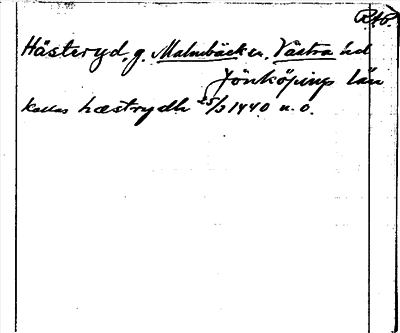 R.A.P.
Hästeryd, g. Malmbäck sn. Västra hd
Jönköpings län
kallas hæstrydh 25/3 1440 n. ö.